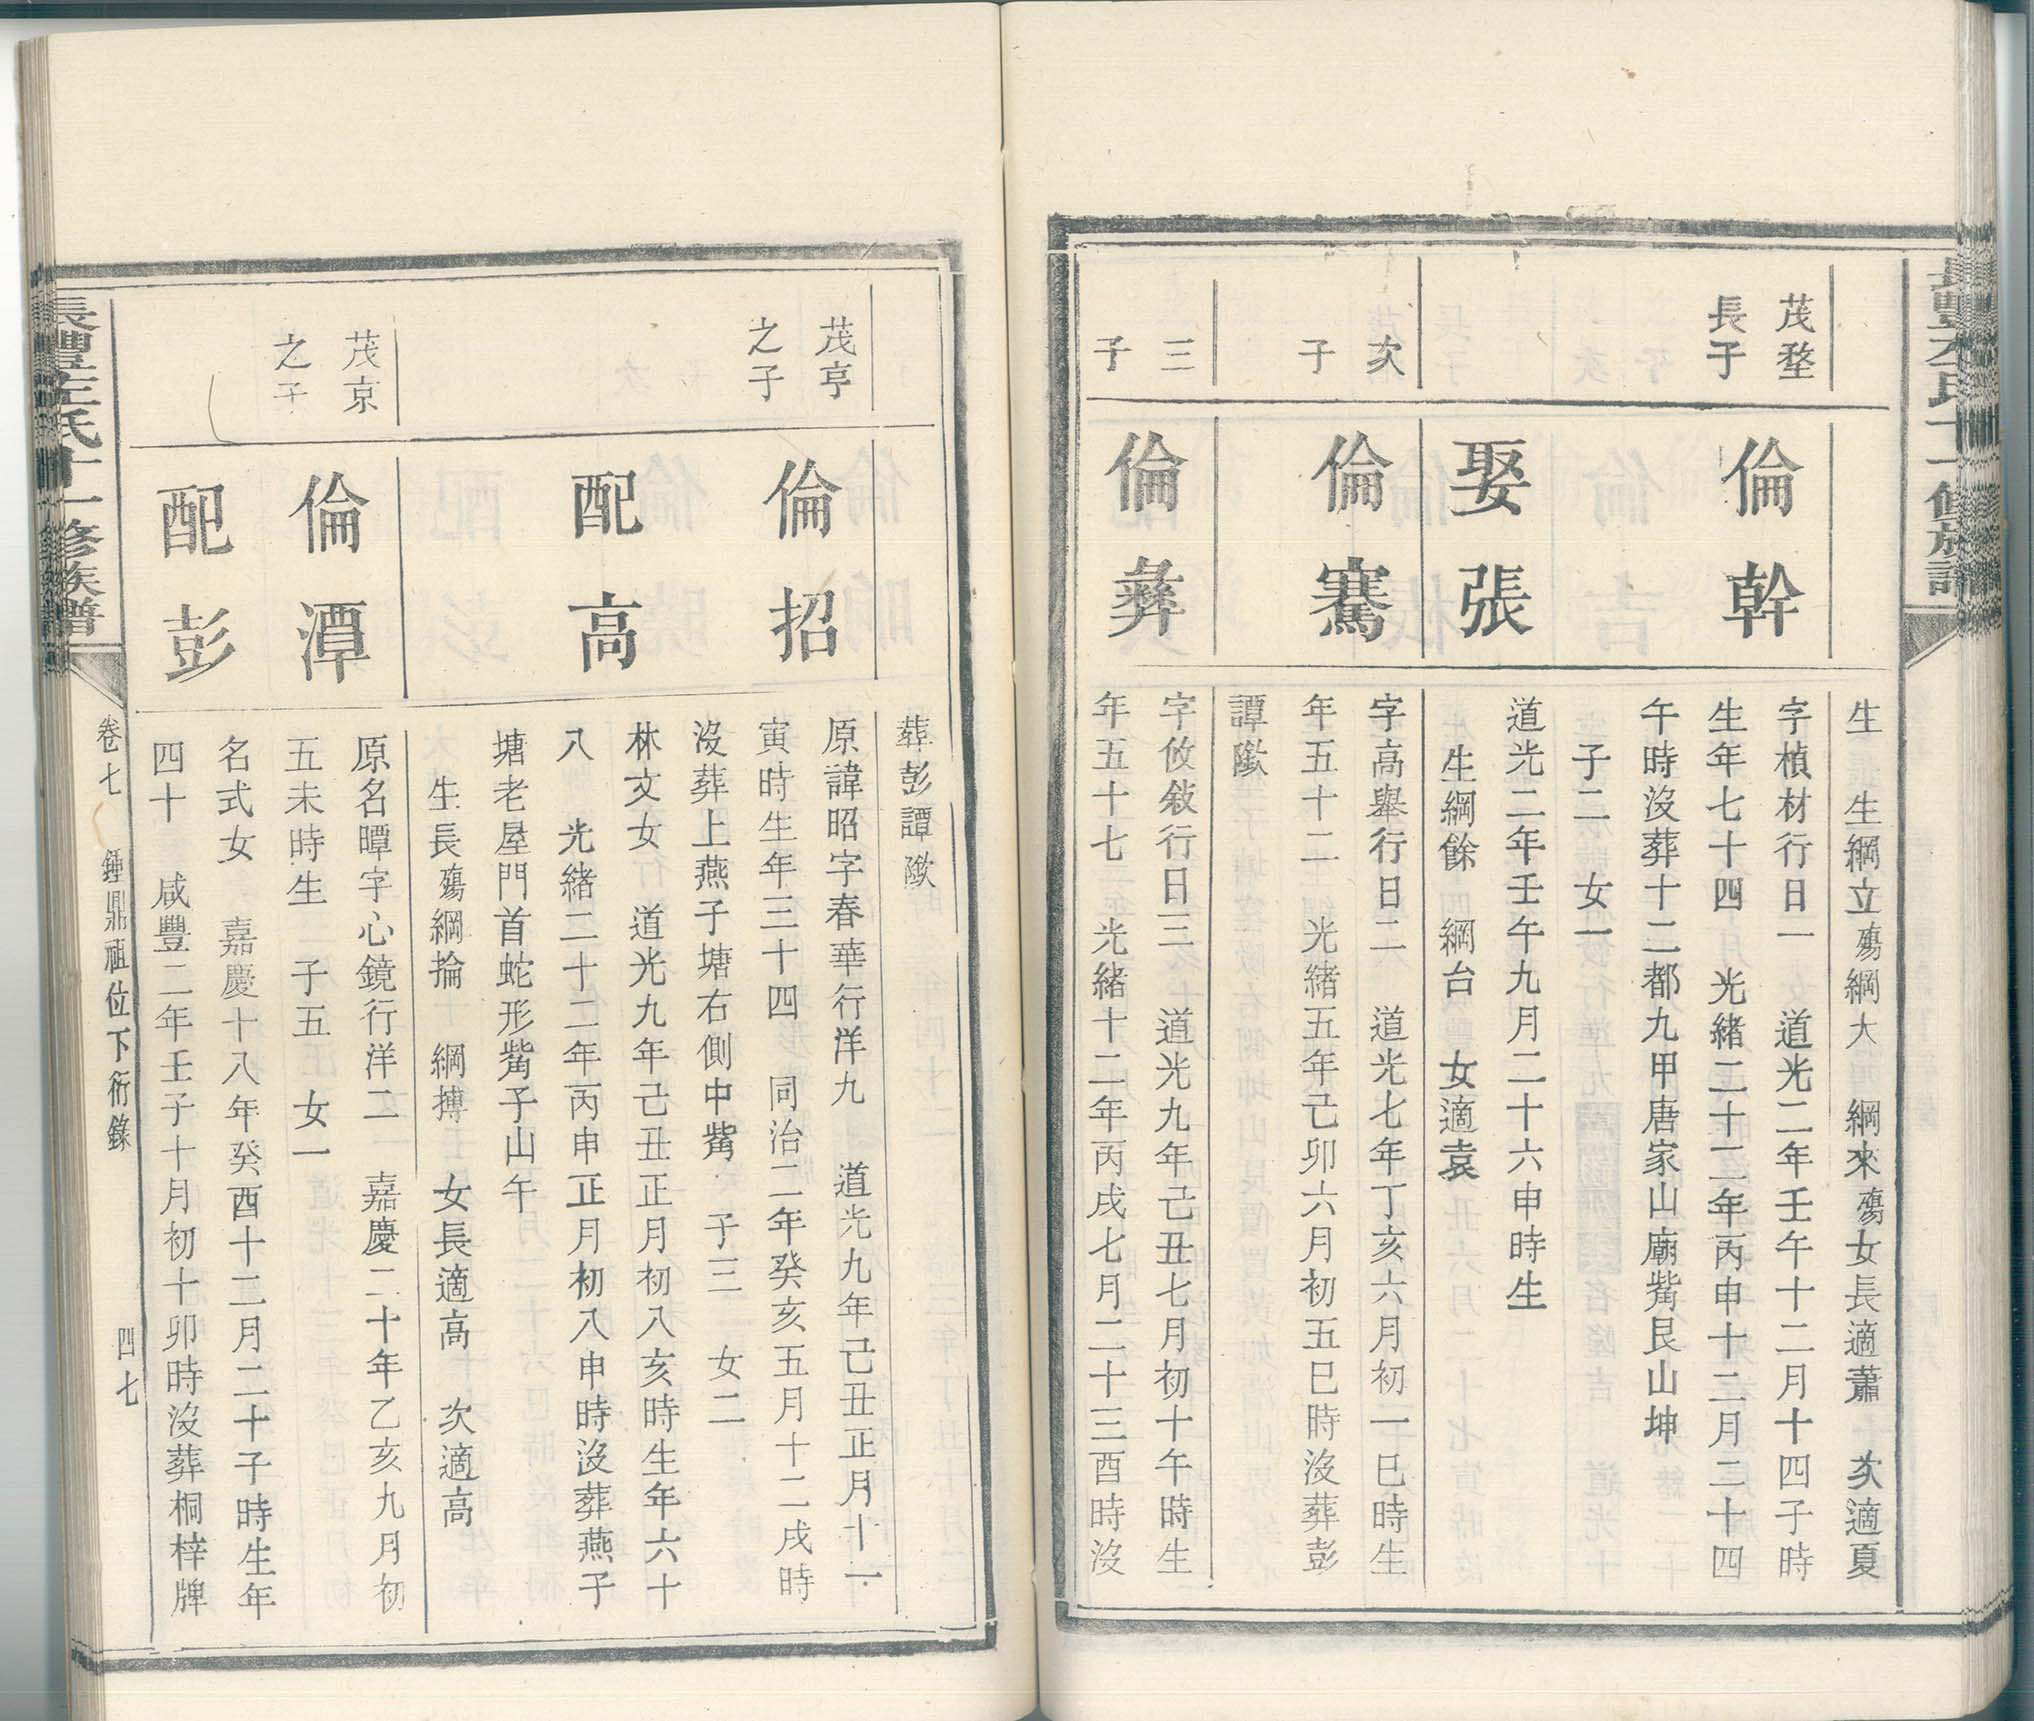 生　生綱立殤綱大　綱來殤女長適蕭　次適夏
茂墪
長子
倫幹
字楨材行日一　道光二年壬午十二月十四子時
生年七十四　光緒二十二年丙申十二月二十四
午時沒葬十二都九甲唐家山廟觜艮山坤
子二　女一
娶張
道光二年壬午九月二十六申時生
生綱餘　綱台　女適袁
次
子
倫騫
字高舉行日二　道光七年丁亥六月初一巳時生
年五十二　光緒五年己卯六月初五巳時沒葬彭
譚歘
三
子
倫彝
字攸敘行日三　道光九年己丑七月初十午時生
年五十七　光緒十二年丙戌七月二十三酉時沒
葬彭譚歘
茂亨
之子
倫招
原諱昭字春華行洋九　道光九年己丑正月十一
寅時生年三十四　同治二年癸亥五月十二戌時
沒葬上燕子塘右側中觜　子三　女二
配高
林文女　道光九年己丑正月初八亥時生年六十
八　光緒二十二年丙申正月初八申時沒葬燕子
塘老屋門首蛇形觜子山午
生長殤綱掄　綱摶　女長適高　次適高
茂京
之子
倫潭
原名曋字心鏡行洋二　嘉慶二十年乙亥九月初
五未時生　子五　女一
配彭
名式女　嘉慶十八年癸酉十二月二十子時生年
四十　咸豐二年壬子十月初十卯時沒葬桐梓牌
長豐左氏十一修族譜
卷七　鍾鼎祖位下衍錄　四七